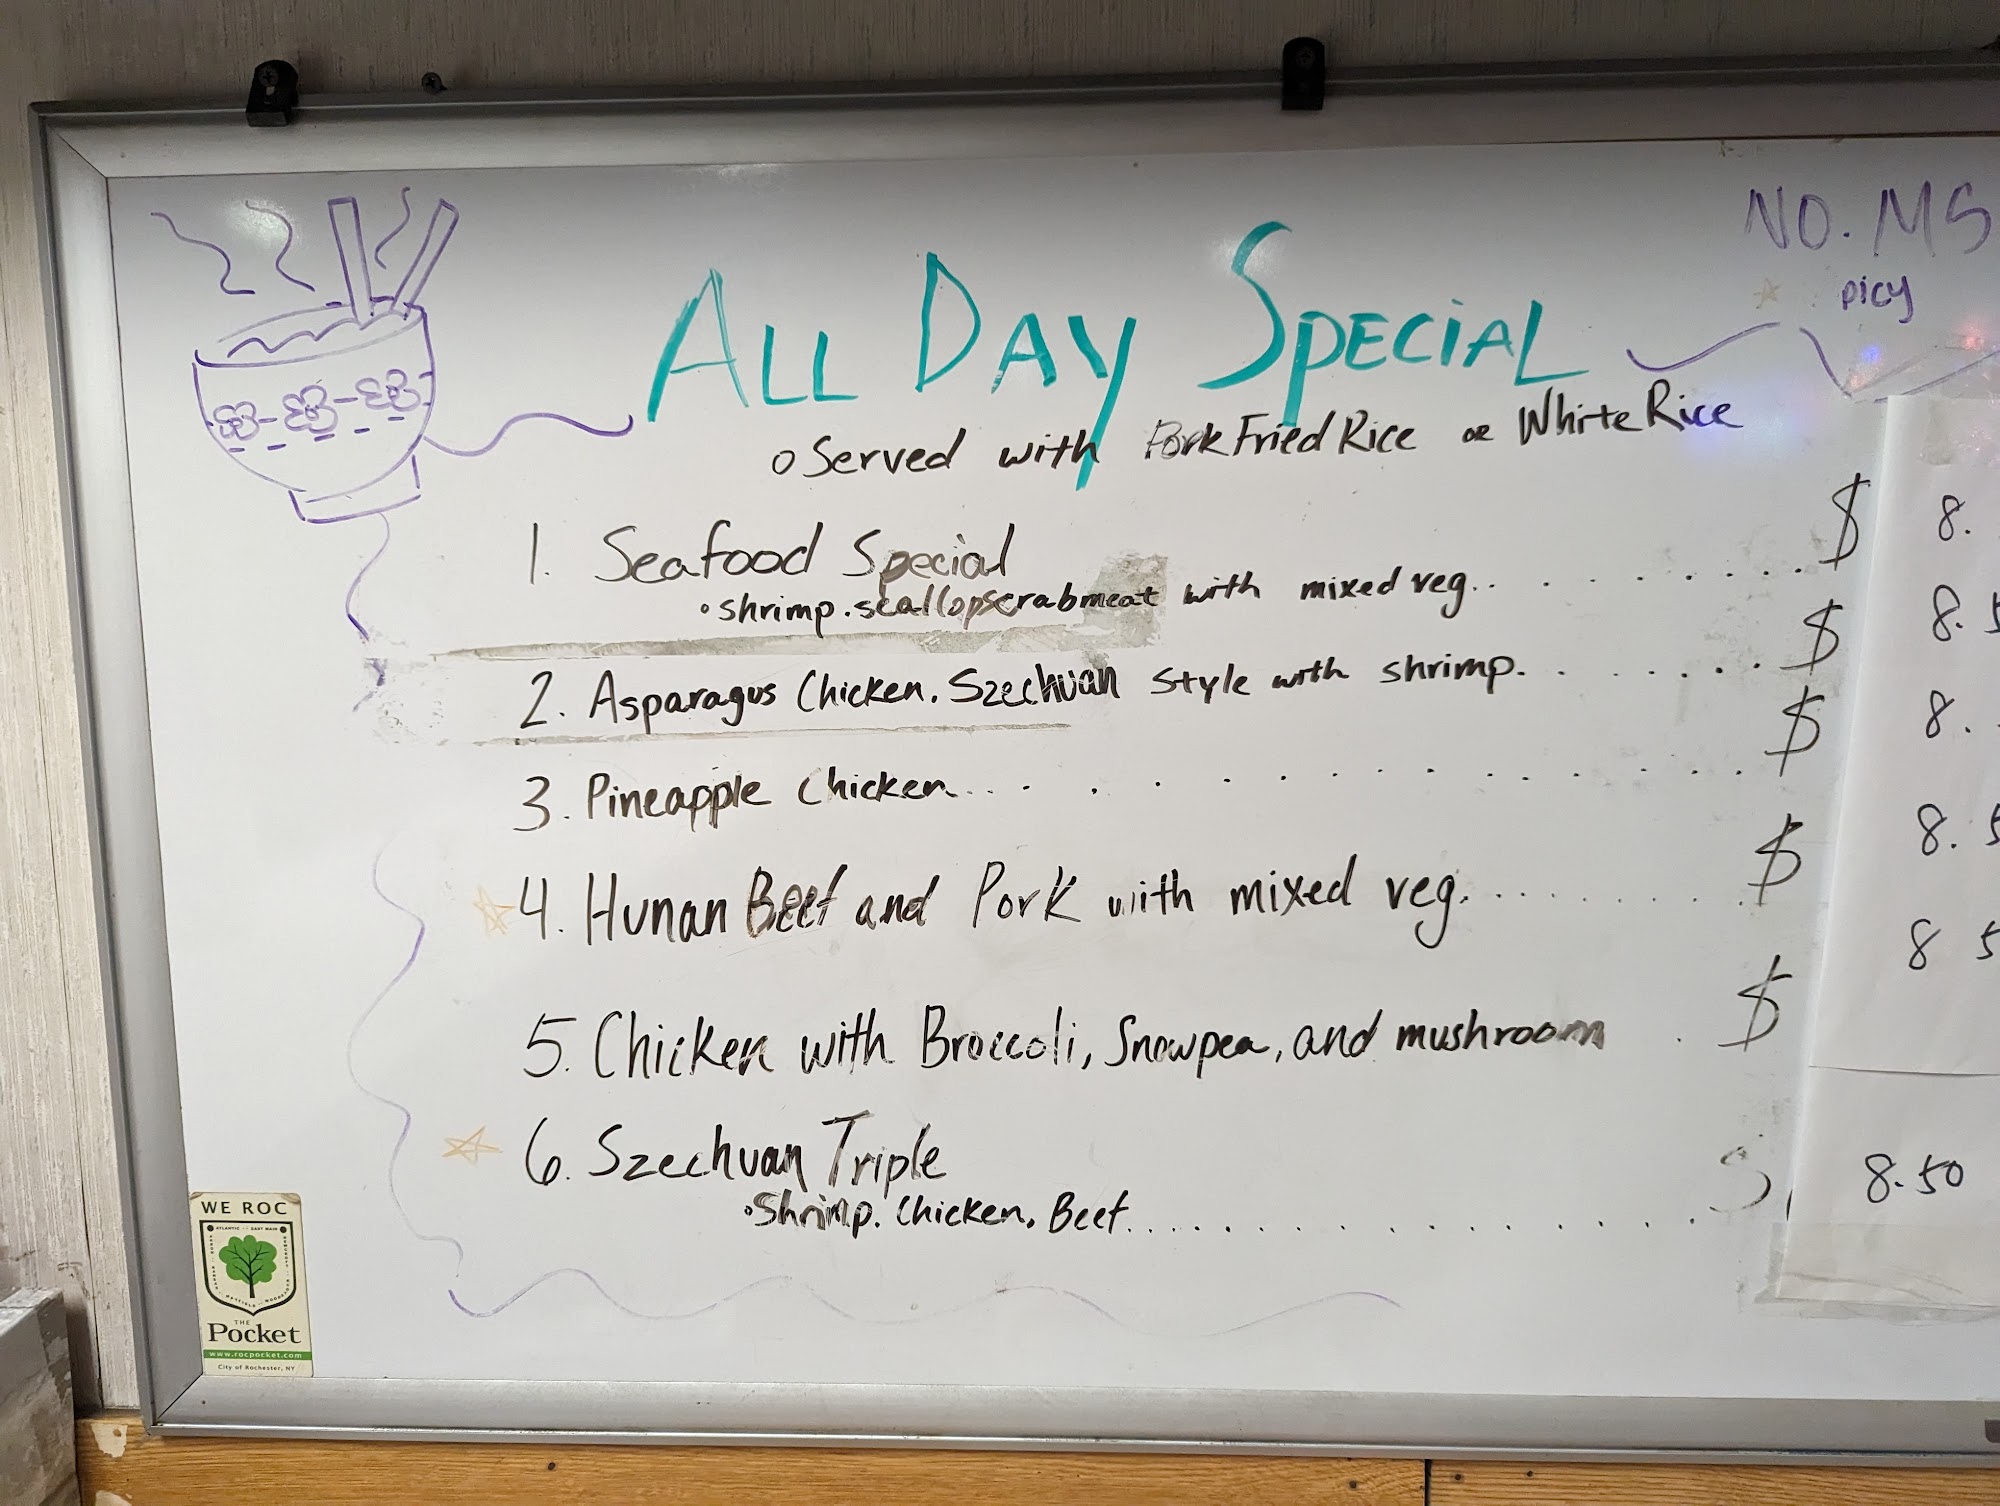 ALL DAY SPECIAL
NO. MS
picy
Served with Pork Fried Rice or White Rice
1. Seafood Special
• shrimp. scallops crabmeat with mixed veg.. . . . . . . . . $ 8.
2. Asparagus Chicken. Szechuan Style with shrimp. . . . . . . . $ 8. 5
3. Pineapple Chicken... . . . . . . . . . . . . . $ 8.
4. Hunan Beef and Pork with mixed veg. . . . . . . . . . $ 8. 5
5. Chicken with Broccoli, Snowpea, and mushroom . $ 8 5
6. Szechuan Triple
• Shrimp. Chicken. Beef. . . . . . . . . . . . . . . . $ 8.50
WE ROC
THE
Pocket
www.rocpocket.com
City of Rochester, NY